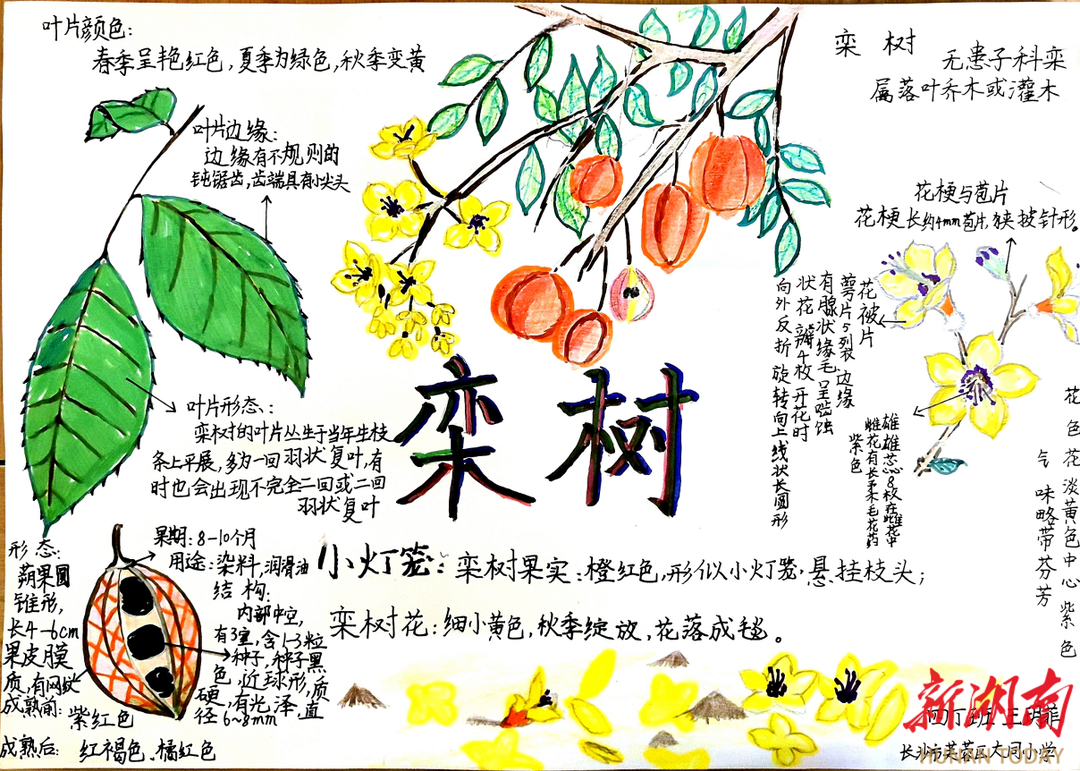 叶片颜色:
春季呈艳红色,夏季为绿色,秋季变黄
叶片边缘:
边缘有不规则的
钝锯齿,齿端具有小尖头
叶片形态:
栾树的叶片丛生于当年生枝
条上平展,多为一回羽状复叶,有
时也会出现不完全二回或二回
羽状复叶
栾树
无患子科栾
属落叶乔木或灌木
花梗与苞片
花梗长约4mm苞片,狭披针形。
花被片
萼片5列裂边缘
有腺状缘毛呈啮蚀
状花瓣4枚开花时
向外反折旋转向上线状长圆形
雄雄蕊8枚在雄花中
雌花有长柔毛花药
紫色
花色花淡黄色中心紫色
气味略带芬芳
栾树
小灯笼:栾树果实:橙红色,形似小灯笼,悬挂枝头;
栾树花:细小黄色,秋季绽放,花落成毯。
果期:8-10个月
用途:染料,润滑油
结构:
内部中空,
有3室,含1-3粒
种子,种子黑
色,近球形,质
硬,有光泽,直
径6~8mm
形态:
蒴果圆
锥形,
长4-6cm
果皮膜
质,有网纹
成熟前:紫红色
成熟后:红褐色、橘红色
新湖南
HUNAN TODAY
长沙市芙蓉区大同小学